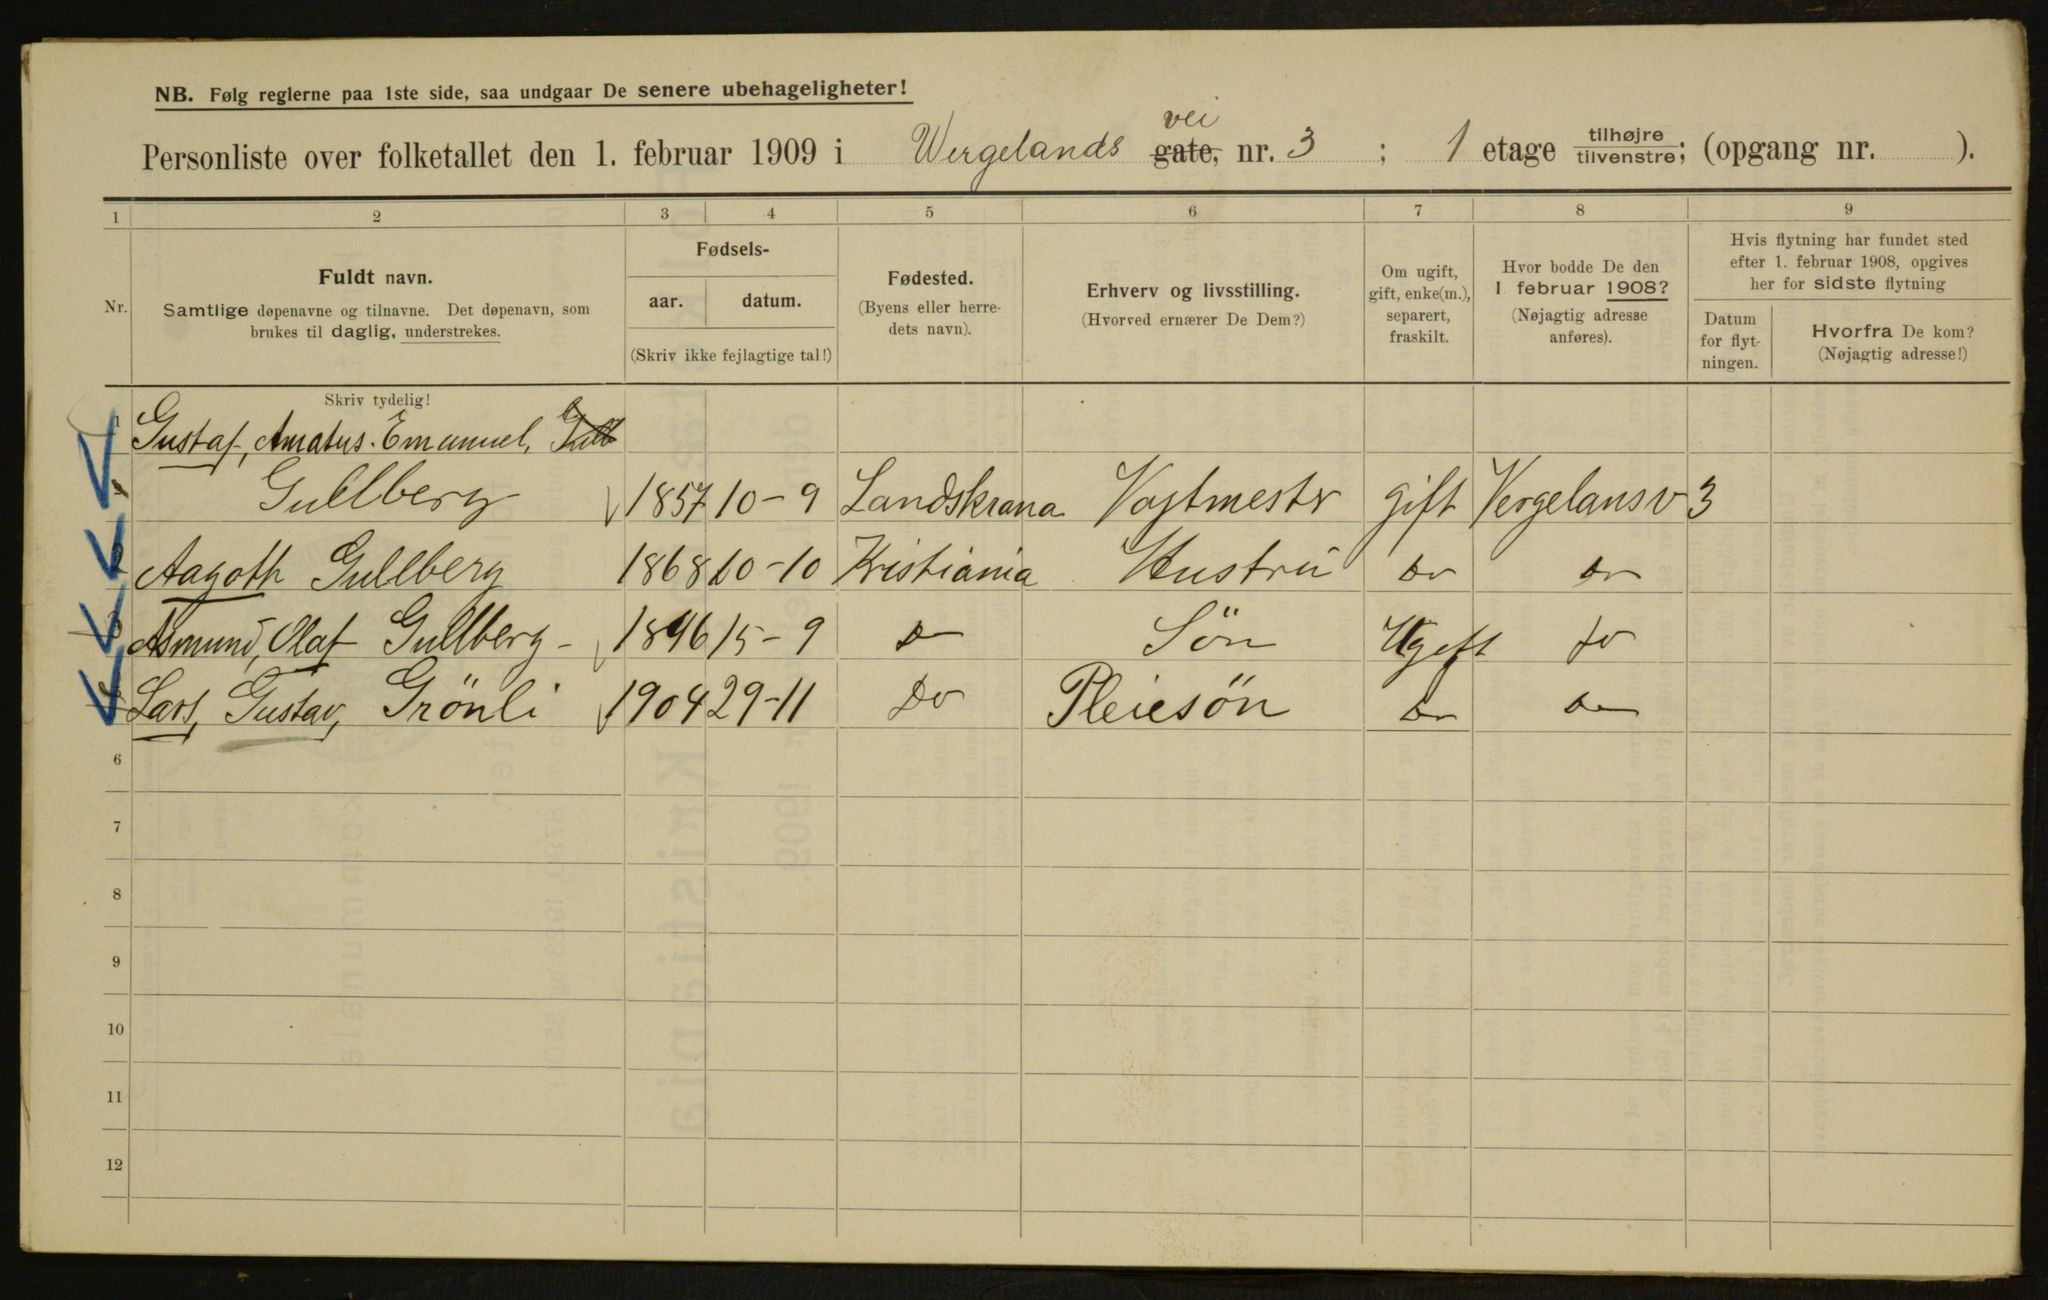 NB. Følg reglerne paa 1ste side, saa undgaar De senere ubehageligheter!
vei
Personliste over folketallet den 1. februar 1909 i Wergelands gate, nr. 3 ; 1 etage tilhøjre tilvenstre; (opgang nr. ).
1 2 3 4 5 6 7 8 9
Nr.
Fuldt navn.
Samtlige døpenavne og tilnavne. Det døpenavn, som
brukes til daglig, understrekes.
Fødsels-
aar. datum.
(Skriv ikke fejlagtige tal!)
Fødested.
(Byens eller herre-
dets navn).
Erhverv og livsstilling.
(Hvorved ernærer De Dem?)
Om ugift,
gift, enke(m.),
separert,
fraskilt.
Hvor bodde De den
1 februar 1908?
(Nøjagtig adresse
anføres).
Hvis flytning har fundet sted
efter 1. februar 1908, opgives
her for sidste flytning
Datum
for flyt-
ningen.
Hvorfra De kom?
(Nøjagtig adresse!)
Skriv tydelig!
1 Gustaf, Amatus. Emanuel, Gull
Gullberg 1857 10-9 Landskrona Vagtmester gift Vergelansv 3
2 Aagoth Gullberg 1868 10-10 Kristiania Hustru Do Do
3 Asmund, Olaf Gullberg - 1896 15-9 Do Søn Ugift Do
Lars, Gustav, Grönli 1904 29-11 Do Pleiesön Do Do
6
7
8
9
10
11
12